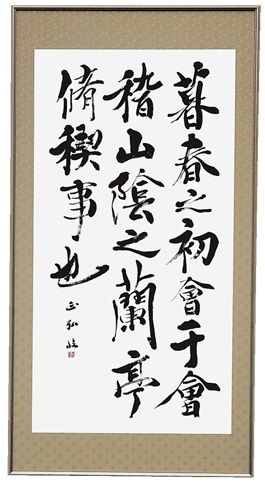 暮春之初會于會
稽山陰之蘭亭
脩稧事也